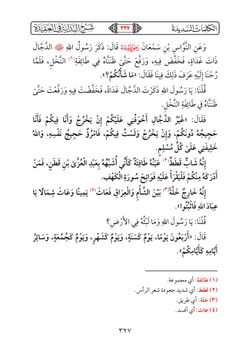 الكلمات السديدة ٣٢٧ شرح البداية في العقيدة
وَعَنِ النَّوَّاسِ بْنِ سَمْعَانَ رَضِيَ اللَّهُ عَنْهُ قَالَ: ذَكَرَ رَسُولُ اللهِ ﷺ الدَّجَّالَ
ذَاتَ غَدَاةٍ، فَخَفَّضَ فِيهِ، وَرَفَّعَ حَتَّى ظَنَنَّاهُ فِي طَائِفَةِ(١) النَّخْلِ، فَلَمَّا
رُحْنَا إِلَيْهِ عَرَفَ ذَلِكَ فِينَا فَقَالَ: «مَا شَأْنُكُمْ؟».
قُلْنَا: يَا رَسُولَ اللهِ ذَكَرْتَ الدَّجَّالَ غَدَاةً، فَخَفَّضْتَ فِيهِ وَرَفَّعْتَ حَتَّى
ظَنَنَّاهُ فِي طَائِفَةِ النَّخْلِ.
فَقَالَ: «غَيْرُ الدَّجَّالِ أَخْوَفُنِي عَلَيْكُمْ إِنْ يَخْرُجْ وَأَنَا فِيكُمْ فَأَنَا
حَجِيجُهُ دُونَكُمْ، وَإِنْ يَخْرُجْ وَلَسْتُ فِيكُمْ، فَامْرُؤٌ حَجِيجُ نَفْسِهِ، وَاللهُ
خَلِيفَتِي عَلَى كُلِّ مُسْلِمٍ.
إِنَّهُ شَابٌّ قَطَطٌ(٢) عَيْنُهُ طَافِئَةٌ كَأَنِّي أُشَبِّهُهُ بِعَبْدِ الْعُزَّى بْنِ قَطَنٍ، فَمَنْ
أَدْرَكَهُ مِنْكُمْ فَلْيَقْرَأْ عَلَيْهِ فَوَاتِحَ سُورَةِ الْكَهْفِ.
إِنَّهُ خَارِجٌ خَلَّةً(٣) بَيْنَ الشَّأْمِ وَالْعِرَاقِ فَعَاثَ(٤) يَمِينًا وَعَاثَ شِمَالًا يَا
عِبَادَ اللهِ فَاثْبُتُوا».
قُلْنَا: يَا رَسُولَ اللهِ وَمَا لَبْثُهُ فِي الأَرْضِ؟
قَالَ: «أَرْبَعُونَ يَوْمًا، يَوْمٌ كَسَنَةٍ، وَيَوْمٌ كَشَهْرٍ، وَيَوْمٌ كَجُمُعَةٍ، وَسَائِرُ
أَيَّامِهِ كَأَيَّامِكُمْ».
(١) طائفة: أي مجموعة.
(٢) قطط: أي شديد جعودة شعر الرأس.
(٣) خلة: أي طريق.
(٤) عاث: أي أفسد.
٣٢٧